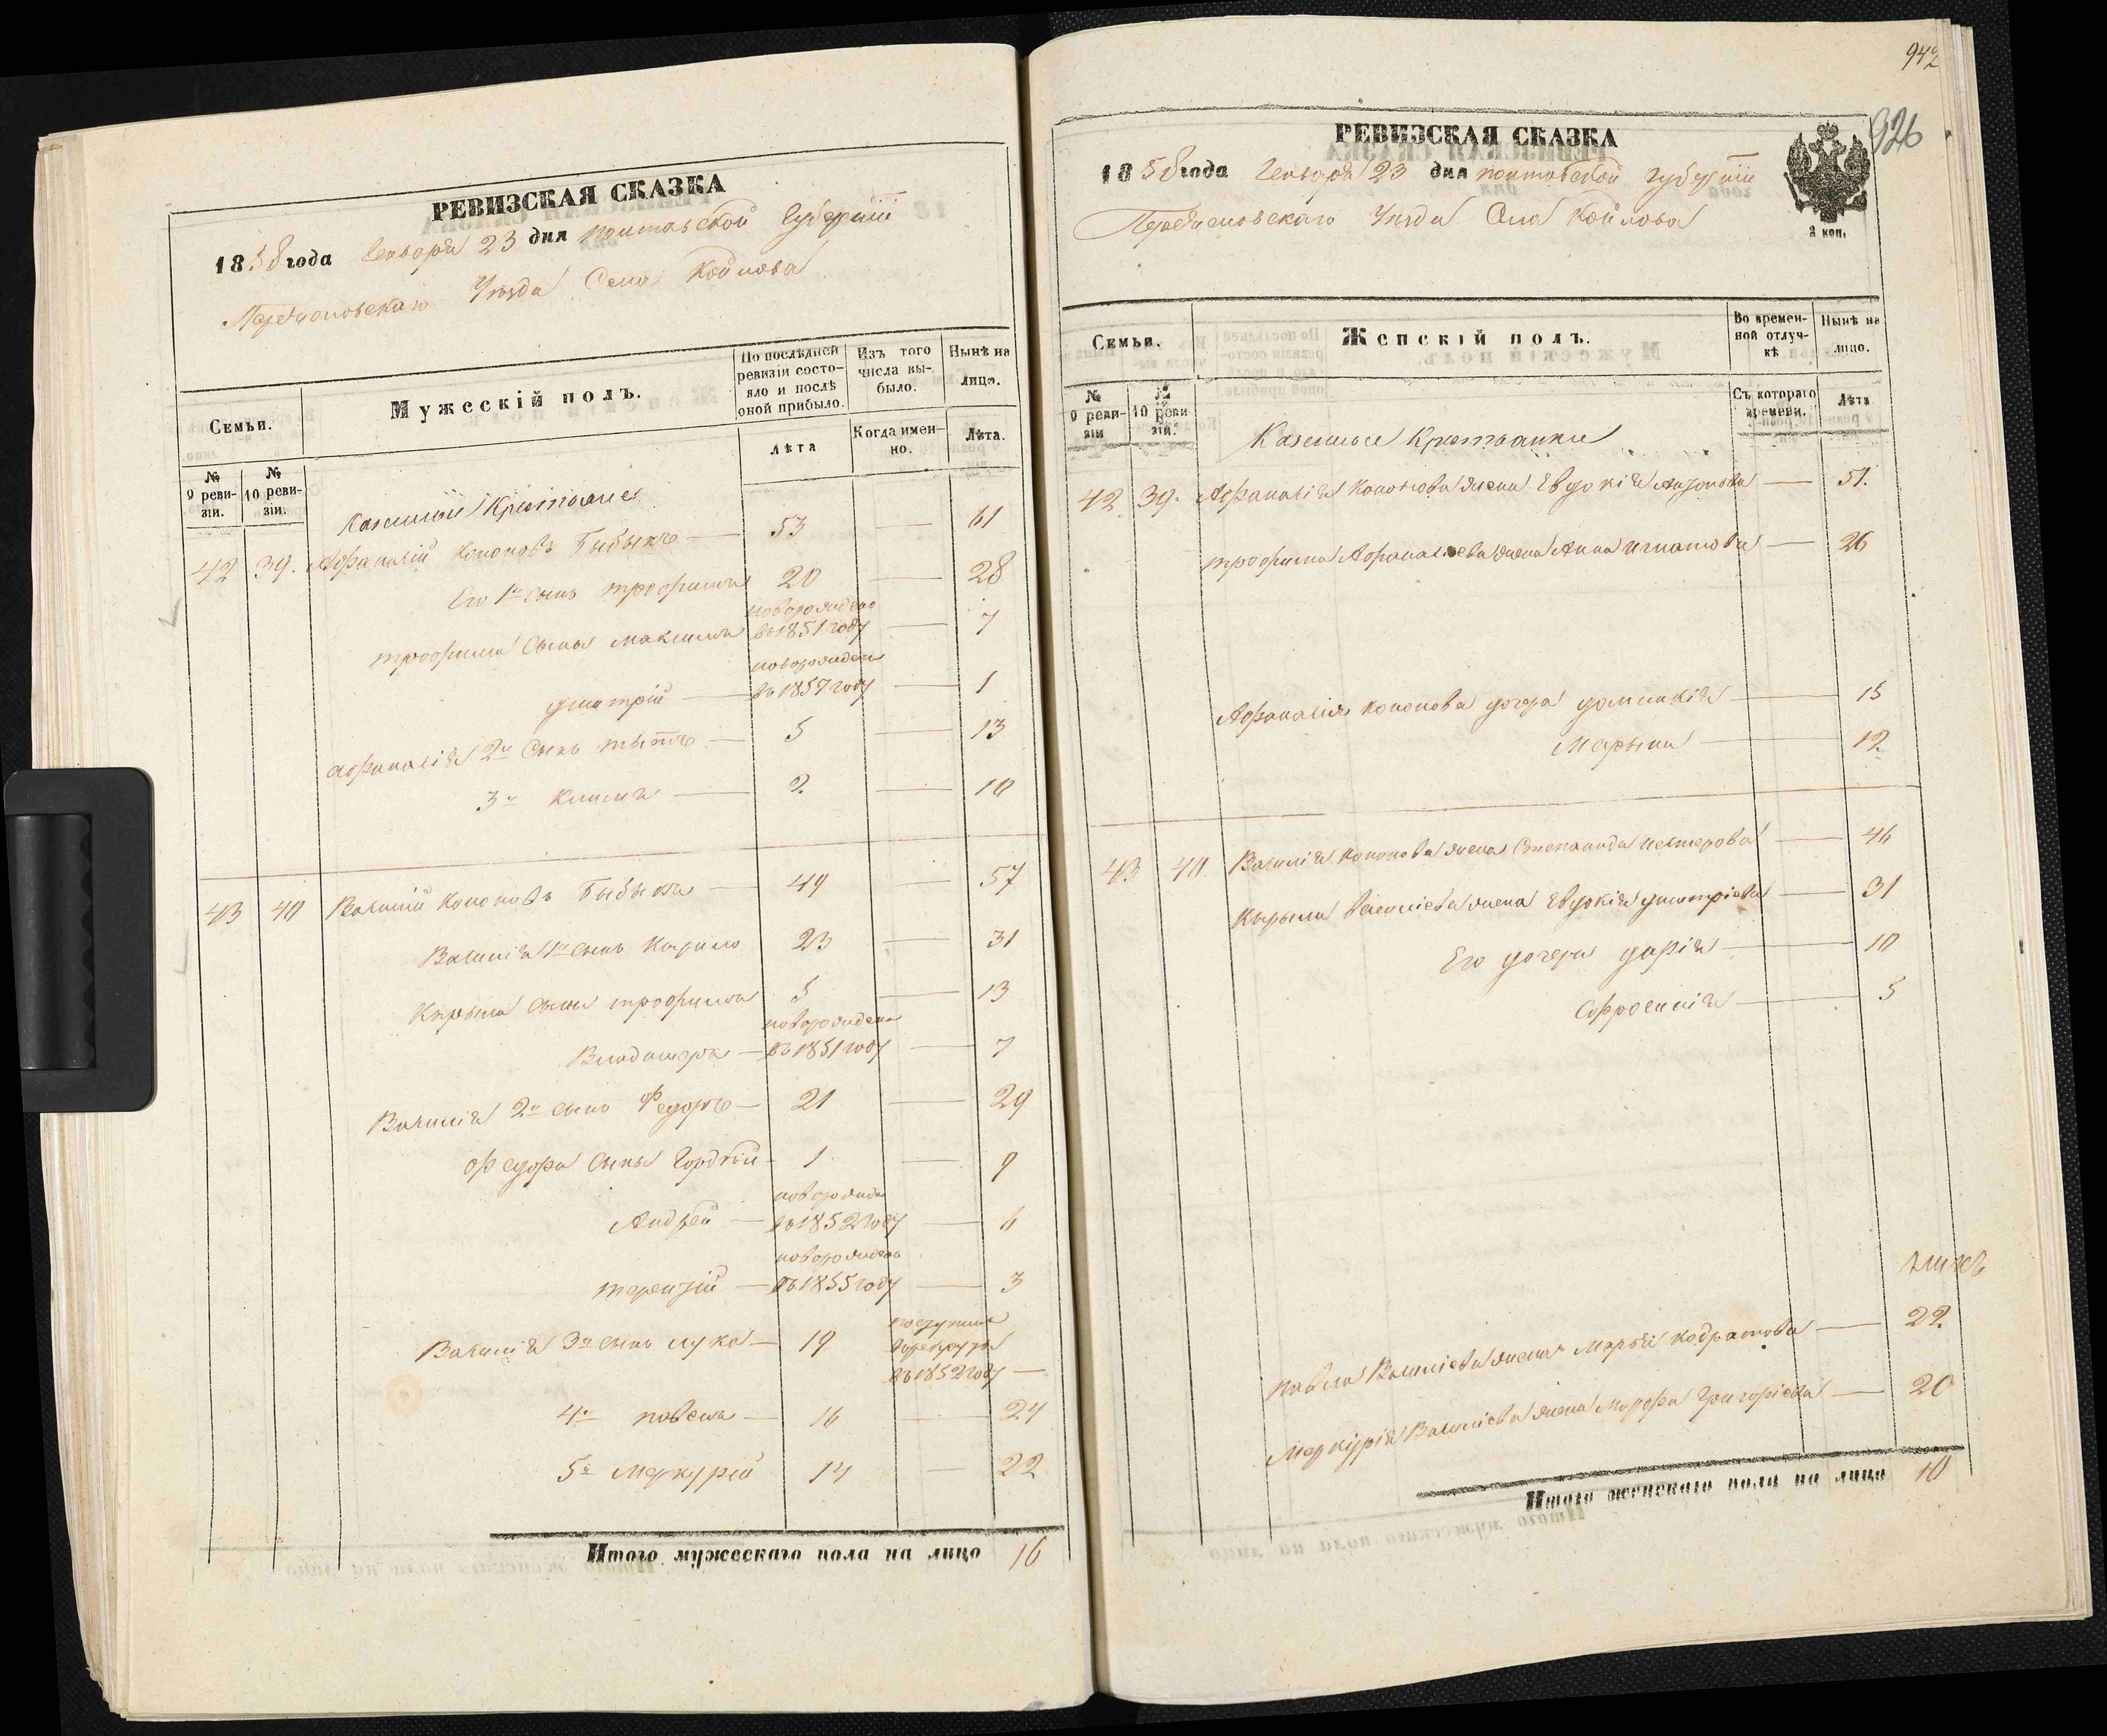 РЕВИЗСКАЯ СКАЗКА
1858 года Генваря 23 дня Полтавской Губерніи
Переяславскаго Уѣзда Села Койлова
Семьи.
Мужескій полъ.
По послѣдней ревизіи состояло и послѣ оной прибыло.
Изъ того числа выбыло.
Нынѣ на лицо.
№ 9 ревизіи.
№ 10 ревизіи.
Лѣта
Когда именно.
Лѣта.
Казенные Крестьяне
42 39. Афанасій Кононовъ Быбыкъ — 53 — 61
Его 1й сынъ Трофимъ 20 — 28
Трофима сыны Максимъ новорожденъ въ 1851 году — 7
Дмитрій — новорожденъ въ 1857 году — 1
Афанасія 2й сынъ Тытъ — 5 — 13
3й Климъ — 2 — 10
43 40 Василій Кононовъ Быбыкъ — 49 — 57
Василія 1й сынъ Кырило 23 — 31
Кырыла сыны Трофимъ 5 — 13
Владимеръ — новорожденъ въ 1851 году — 7
Василія 2й сынъ Федоръ — 21 — 29
Федора сыны Гордѣй — 1 — 9
Андрей — новорожде въ 1852 году — 6
Терентій — новорожденъ въ 1855 году — 3
Василія 3й сынъ Лука — 19 въ 1852 году —
4й Павелъ — 16 — 24
5й Меркурій 14 — 22
Итого мужескаго пола на лицо 16
942
926
РЕВИЗСКАЯ СКАЗКА
1858 года Генваря 23 дня Полтавской Губерніи
Переяславскаго Уѣзда Села Койлова
2 коп.
Семьи.
Женскій полъ.
Во временной отлучкѣ
Нынѣ на лицо.
№ 9 ревизіи
№ 10 ревизіи.
Съ котораго времени.
Лѣта
Казенные Крестьянки
42 39. Афанасія Кононова жена Евдокія Антонова — 51.
Трофима Афанасіева жена Анна Игнатова — 26
Афанасія Кононова дочера Доминикія — 15
Марына — 12
43 40. Василія Кононова жена Степанида Нестерова — 46
Кырыла Василіева жена Евдокія Дмитріева — 31
Его дочери Дарія — 10
Софроснія — 5
Павла Василіева жена Марія Кодратова — 22
Меркурія Василіева жена Марфа Григоріева — 20
Итого женскаго пола на лицо 10